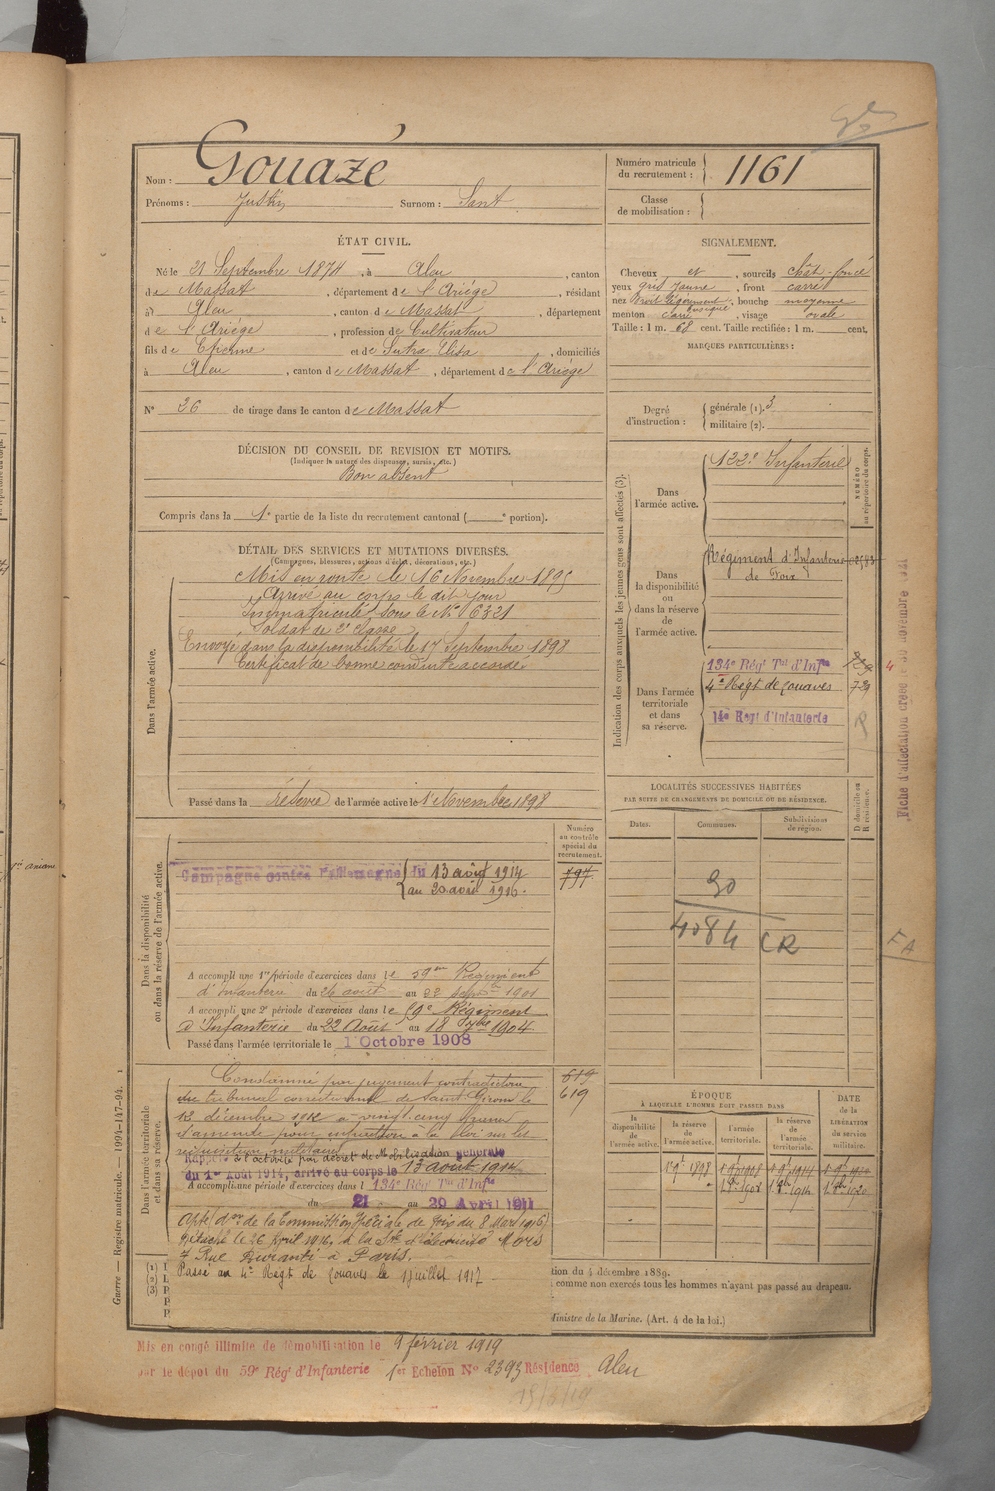 Gouazé
Nom :
Prénoms : Justin Surnom : Sans
ÉTAT CIVIL.
Né le 21 Septembre 1874, à Aleu, canton
de Massat, département de l'Ariége, résidant
à Aleu, canton de Massat, département
de l'Ariége, profession de Cultivateur
fils de Etienne et de Sutra Elisa, domiciliés
à Aleu, canton de Massat, département de l'Ariége
N° 26 de tirage dans le canton de Massat
DÉCISION DU CONSEIL DE REVISION ET MOTIFS.
(Indiquer la nature des dispenses, sursis, etc.)
Bon absent
Compris dans la 1e partie de la liste du recrutement cantonal ( e portion).
DÉTAIL DES SERVICES ET MUTATIONS DIVERSES.
(Campagnes, blessures, actions d'éclat, décorations, etc.)
Dans l'armée active.
Mis en route le 16 Novembre 1895
Arrivé au corps le dit jour
Immatriculé sous le N° 6321
Soldat de 2e classe
Envoyé dans la disponibilité le 17 Septembre 1898
Certificat de bonne conduite accordé
Passé dans la réserve de l'armée active le 1r Novembre 1898
Numéro au contrôle spécial du recrutement.
Dans la disponibilité ou dans la réserve de l'armée active.
Campagne contre l'Allemagne du 13 août 1914
au 20 avril 1916.
797
A accompli une 1re période d'exercices dans le 59me Régiment
d'Infanterie du 26 août au 22 septbre 1901
A accompli une 2e période d'exercices dans le 59e Régiment
d'Infanterie du 22 Août au 18 7bre 1904.
Passé dans l'armée territoriale le 1 Octobre 1908
Dans l'armée territoriale et dans sa réserve.
Condamné par jugement contradictoire
du tribunal correctionnel de Saint Girons le
12 décembre 1912 à vingt cinq francs
d'amende pour infraction à la loi sur les
réquisitions militaires
619
619
Rappelé à l'activité par décret de Mobilisation générale
du 1er Août 1914, arrivé au corps le 13 août 1914
A accompli une période d'exercices dans l 134e Rég Tal d'Infie
du 21 au 29 Avril 1911
de la Commission Spéciale de Foix du 8 Mars 1916)
Détaché le 26 Avril 1916, à la Sté d'électricité Mors
7 Rue Duranti à Paris.
Passé au 4e Régt de Zouaves le 1 juillet 1917
(1)
(2)
(3)
tion du 4 décembre 1889.
comme non exercés tous les hommes n'ayant pas passé au drapeau.
Ministre de la Marine. (Art. 4 de la loi.)
Mis en congé illimité de démobilisation le 9 février 1919
par le dépôt du 59e Régt d'Infanterie 1er Echelon No 2393 Résidence Aleu
Guerre — Registre matricule. — 1994-147-94.
Numéro matricule du recrutement : 1161
Classe de mobilisation :
SIGNALEMENT.
Cheveux et, sourcils chât-foncé
yeux gris jaune, front carré
nez Droit légèrement busqué, bouche moyenne
menton carré, visage ovale
Taille : 1 m. 68 cent. Taille rectifiée : 1 m. cent.
MARQUES PARTICULIÈRES :
Degré d'instruction : générale (1). 3
militaire (2).
Indication des corps auxquels les jeunes gens sont affectés (3).
NUMÉRO au répertoire du corps.
Dans l'armée active.
122e Infanterie
Dans la disponibilité ou dans la réserve de l'armée active.
Régiment d'Infanterie
de Foix
Dans l'armée territoriale et dans sa réserve.
134e Régt Tal d'Infie
4e Régt de Zouaves 739
14e Regt d'Infanterie R
Fiche d'affectation créée
LOCALITÉS SUCCESSIVES HABITÉES
PAR SUITE DE CHANGEMENTS DE DOMICILE OU DE RÉSIDENCE.
Dates. Communes. Subdivisions de région. D domicile ou R résidence.
90
4084 CR
FA
ÉPOQUE
À LAQUELLE L'HOMME DOIT PASSER DANS
DATE de la LIBÉRATION du service militaire.
la disponibilité de l'armée active.
la réserve de l'armée active.
l'armée territoriale.
la réserve de l'armée territoriale.
1r 9bre 1898 1r 9bre 1908 1r 9bre 1914
1r 8bre 1908 1r 8bre 1914 1r 8bre 1920